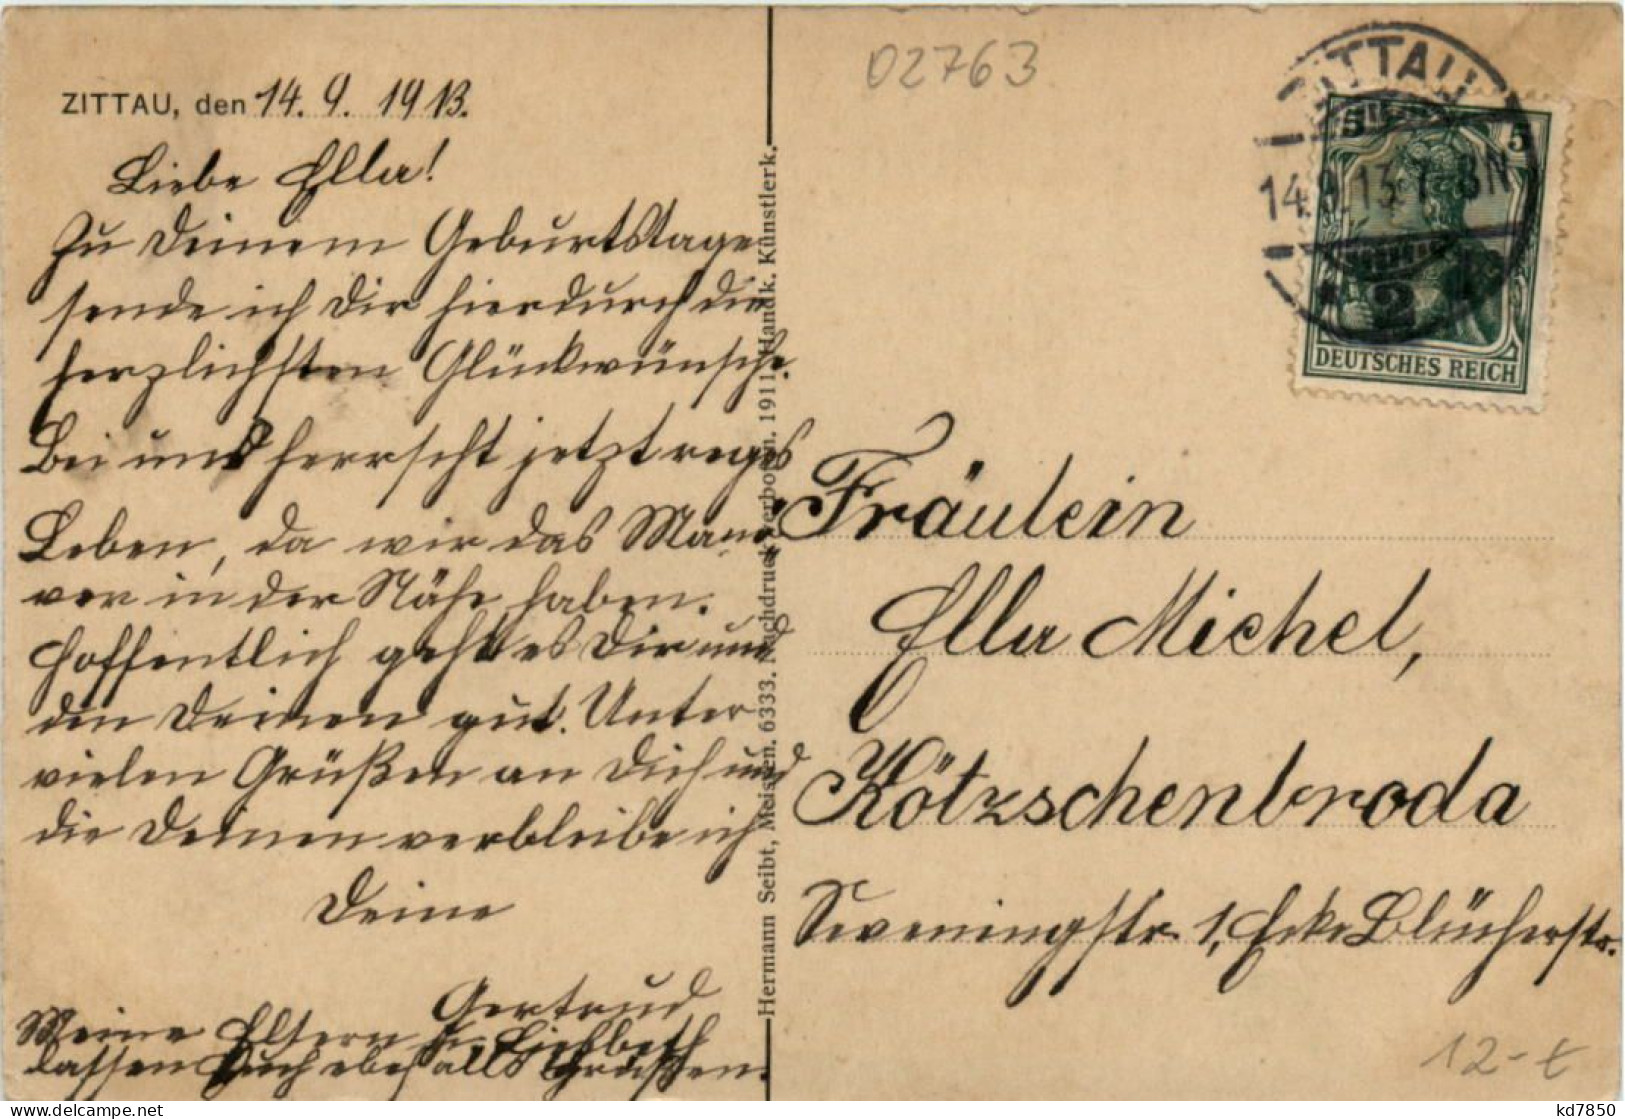 ZITTAU, den 14. 9. 1913.
Liebe Ella!
Zu Deinem Geburtstage
sende ich Dir hierdurch die
herzlichsten Glückwünsche.
Bei uns herrscht jetzt reges
Leben, da wir das Manö-
ver in der Nähe haben.
Hoffentlich geht es Dir und
den Deinen gut. Unter
vielen Grüßen an Dich und
die Deinen verbleibe ich
Deine
Gertrud
Meine Eltern u. Liesbeth
lassen Euch ebenfalls grüßen.
Hermann Seibt, Meissen. 6333. Nachdruck verboten. 1911. Handk. Künstlerk.
02763
ZITTAU
14.9.13. 7-8N
* 2
5 5
DEUTSCHES REICH
Fräulein
Ella Michel,
Kötzschenbroda
1, Ecke Blücherstr.
12-
kd7850